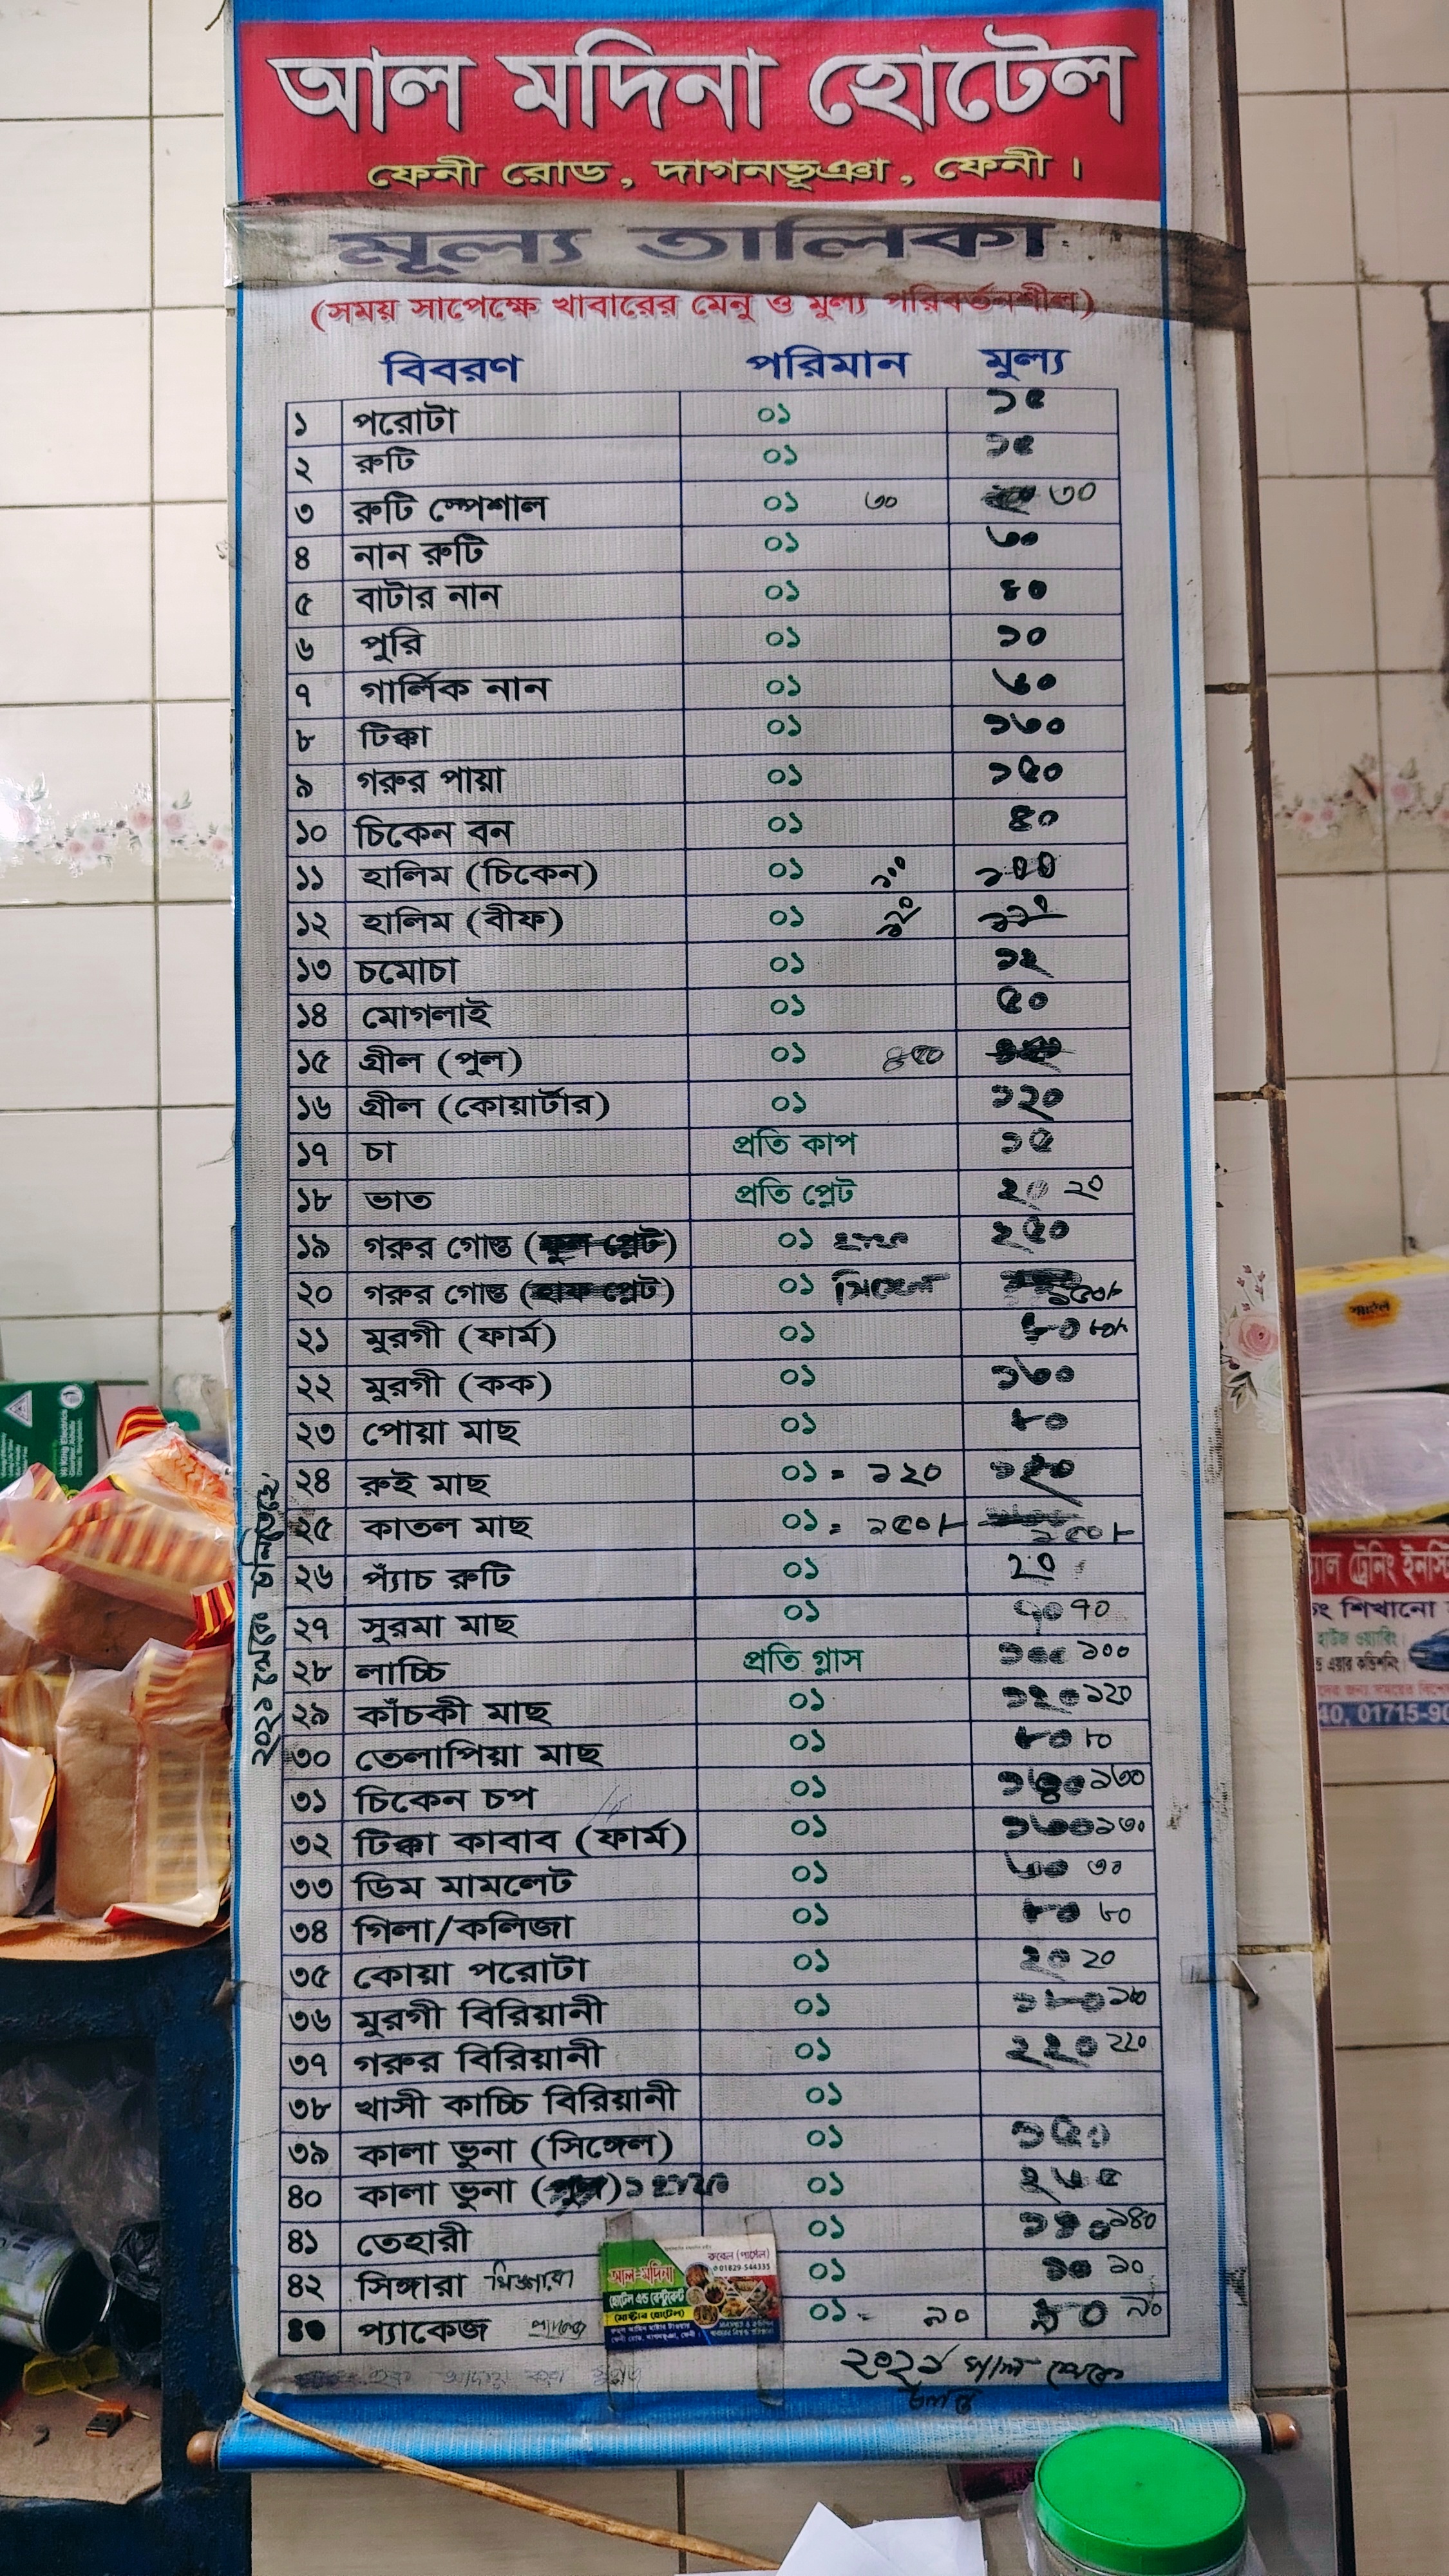 আল মদিনা হোটেল
ফেনী রোড, দাগনভূঞা, ফেনী।
মূল্য তালিকা
(সময় সাপেক্ষে খাবারের মেনু ও মুল্য পরিবর্তনশীল)
বিবরণ পরিমান মুল্য
১ পরোটা ০১ ১৫
২ রুটি ০১ ১৫
৩ রুটি স্পেশাল ০১ ৩০ ৩০
৪ নান রুটি ০১ ৩০
৫ বাটার নান ০১ ৪০
৬ পুরি ০১ ১০
৭ গার্লিক নান ০১ ৬০
৮ টিক্কা ০১ ১৬০
৯ গরুর পায়া ০১ ১৫০
১০ চিকেন বন ০১ ৪০
১১ হালিম (চিকেন) ০১ ১০০ ১০০
১২ হালিম (বীফ) ০১ ১২০
১৩ চমোচা ০১ ১২
১৪ মোগলাই ০১ ৫০
১৫ গ্রীল (পুল) ০১ ৪৫০
১৬ গ্রীল (কোয়ার্টার) ০১ ১২০
১৭ চা প্রতি কাপ ১৫
১৮ ভাত প্রতি প্লেট ২০ ২০
১৯ গরুর গোস্ত (ফুল প্লেট) ০১ ২৫০
২০ গরুর গোস্ত (হাফ প্লেট) ০১ সিঙ্গেল ১৫০৲
২১ মুরগী (ফার্ম) ০১ ৮০ ৮০৲
২২ মুরগী (কক) ০১ ১৬০
২৩ পোয়া মাছ ০১ ৮০
২৪ রুই মাছ ০১ = ১২০ ১২০
২৫ কাতল মাছ ০১ = ১৫০৲ ১৫০৲
২৬ প্যাঁচ রুটি ০১ ২০
২৭ সুরমা মাছ ০১ ৭০ ৭০
২৮ লাচ্চি প্রতি গ্লাস ১০০ ১০০
২৯ কাঁচকী মাছ ০১ ১২০ ১২০
৩০ তেলাপিয়া মাছ ০১ ৮০ ৮০
৩১ চিকেন চপ ০১ ১৬০
৩২ টিক্কা কাবাব (ফার্ম) ০১ ১৬০ ১৬০
৩৩ ডিম মামলেট ০১ ৩০ ৩০
৩৪ গিলা/কলিজা ০১ ৮০ ৮০
৩৫ কোয়া পরোটা ০১ ২০ ২০
৩৬ মুরগী বিরিয়ানী ০১ ১৮০ ১৮০
৩৭ গরুর বিরিয়ানী ০১ ২২০ ২২০
৩৮ খাসী কাচ্চি বিরিয়ানী ০১
৩৯ কালা ভুনা (সিঙ্গেল) ০১ ১৫০
৪০ কালা ভুনা (পুল) ০১
৪১ তেহারী ০১ ১৪০
৪২ সিঙ্গারা সিঙ্গারা ০১ ১০ ১০
৪৩ প্যাকেজ প্যাকেজ ০১ - ৯০ ৯০ ৯০
২০২১ থেকে চলিতেছে
২০২১ সাল থেকে
চলতি
রুবেল (পার্সেল)
01829-544335
আল-মদিনা
হোটেল এন্ড রেস্টুরেন্ট
Hi King Electrics
্যাল ট্রেনিং ইনস্টি
ং শিখানো
হাউজ ওয়্যারিং
ও এয়ার কন্ডিশনিং
40, 01715-90